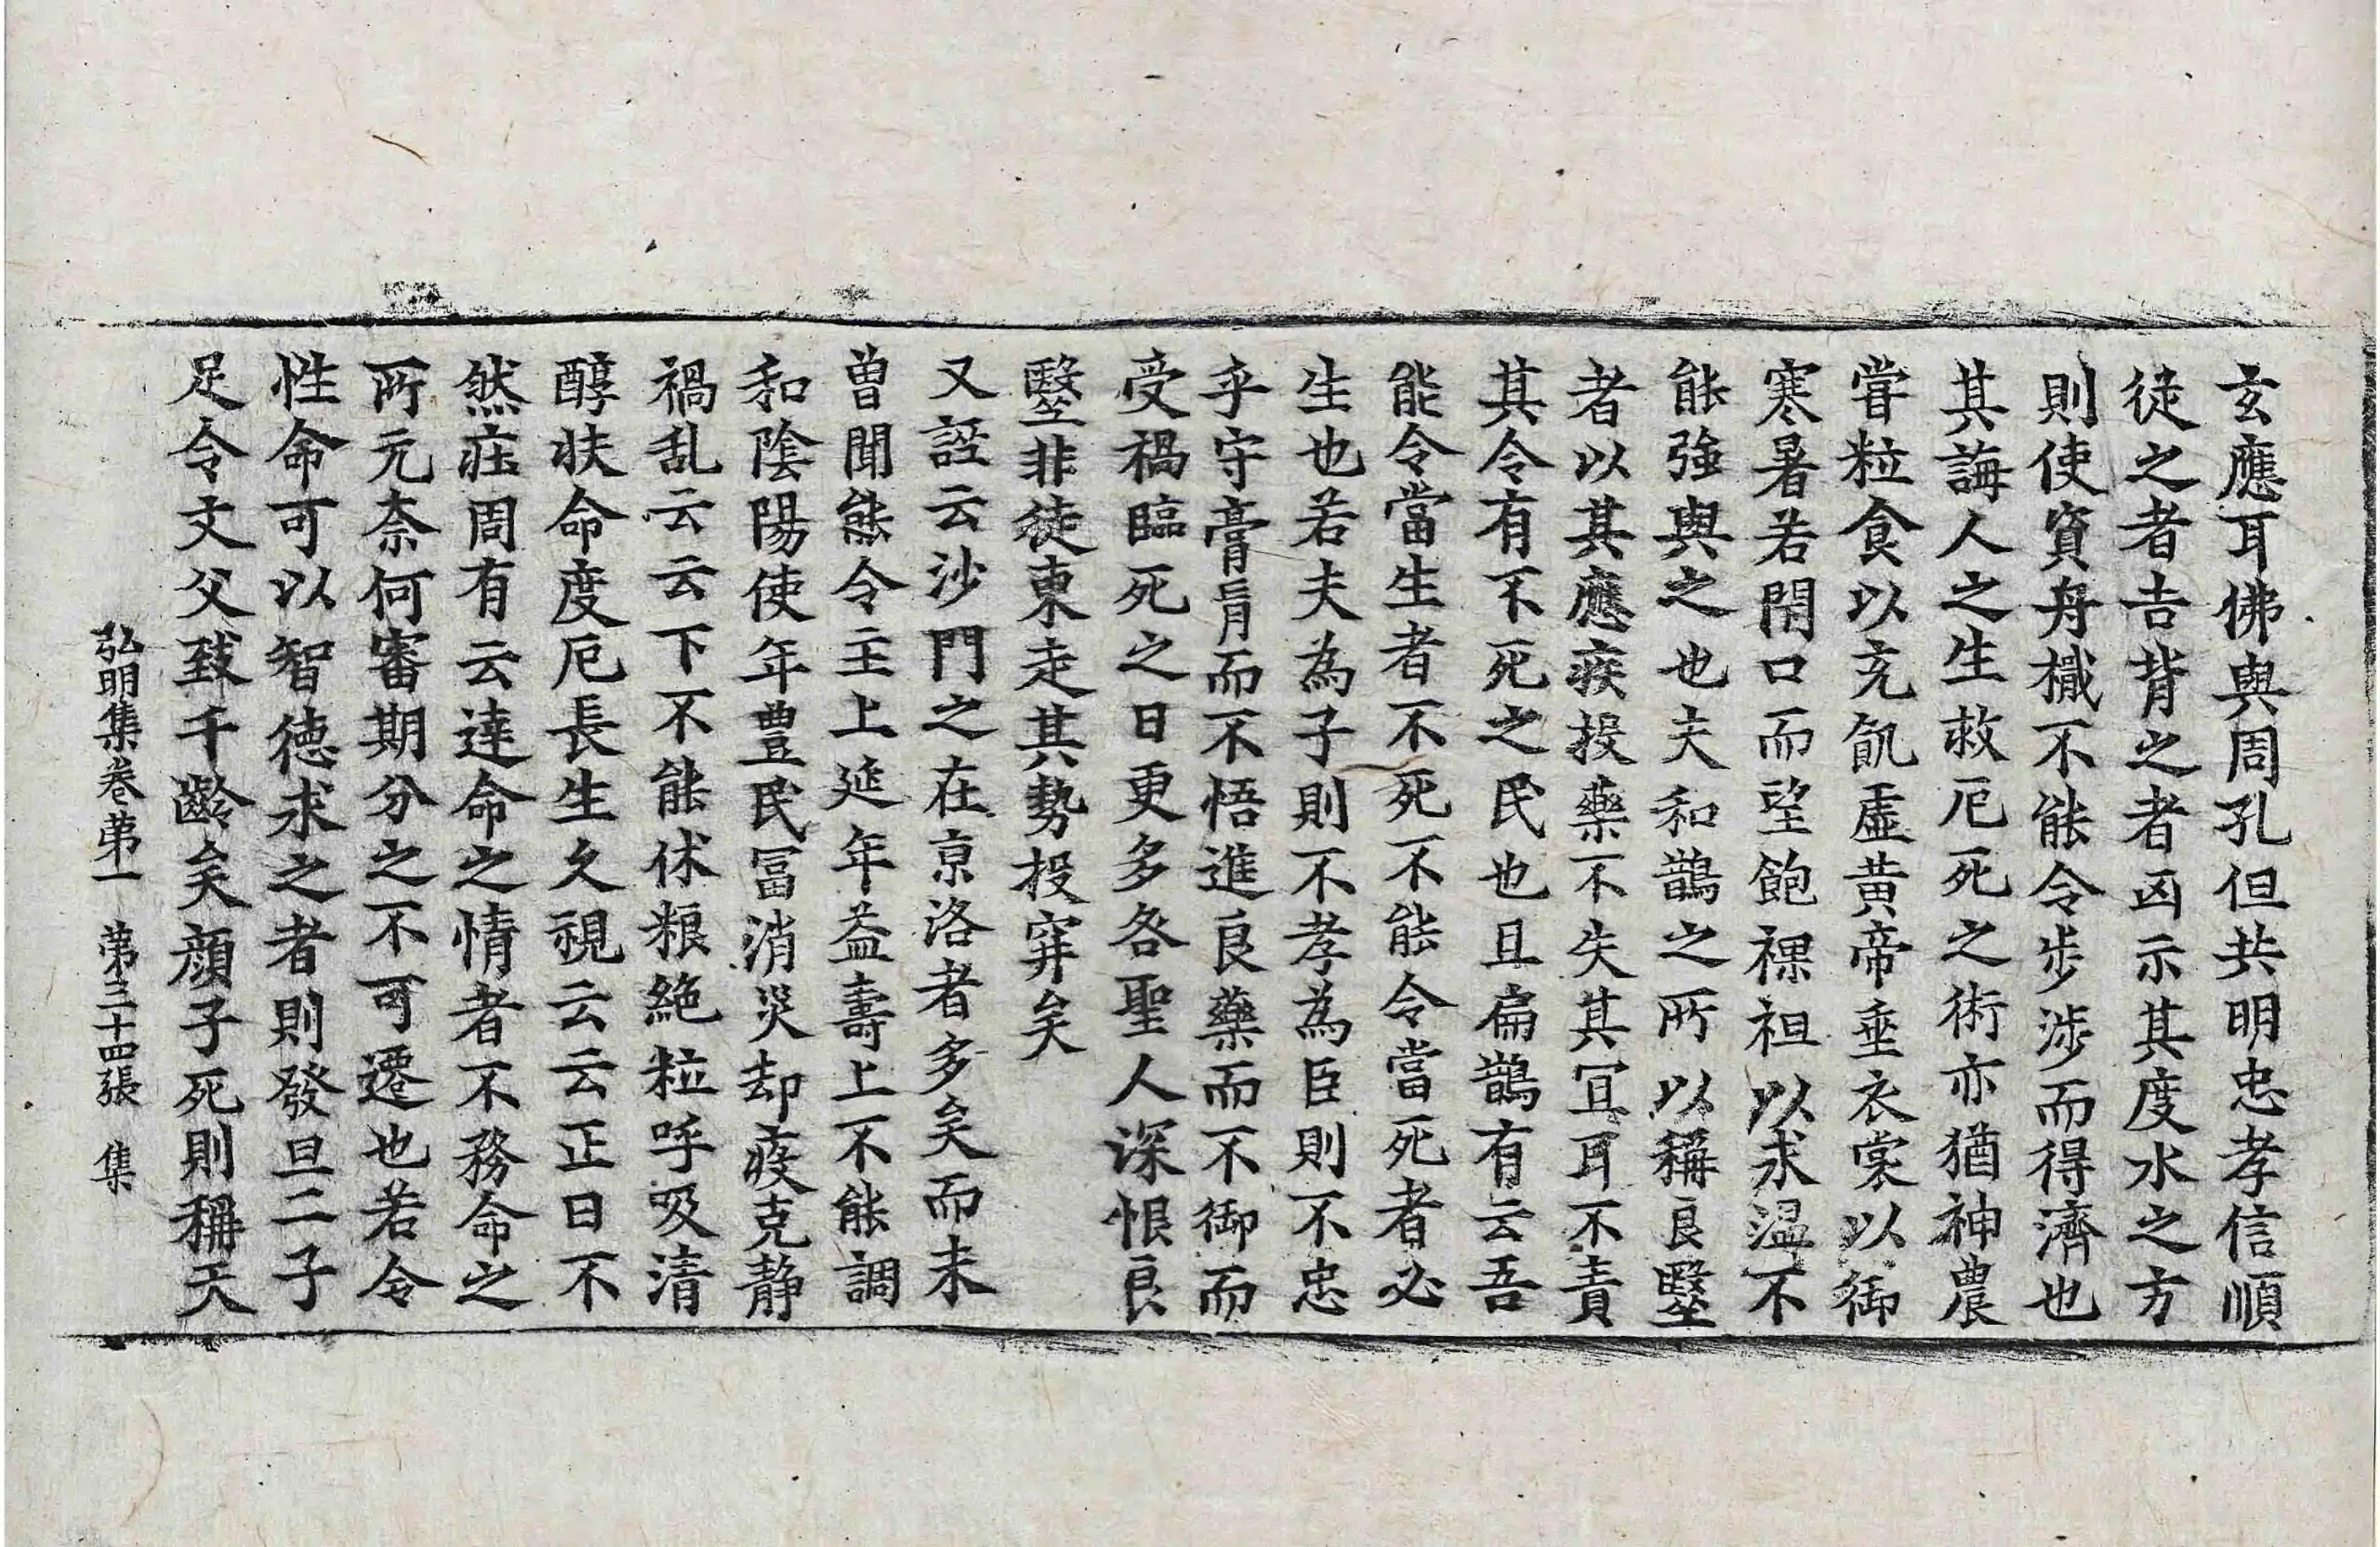 玄應耳佛與周孔但共明忠孝信順
徒之者吉背之者凶示其度水之方
則使資舟檝不能令步涉而得濟也
其誨人之生救厄死之術亦猶神農
甞粒食以充飢虛黃帝垂衣裳以御
寒暑若閇口而望飽裸袒以求温不
能強與之也夫和鵲之所以稱良毉
者以其應疾投藥不失其冝耳不責
其令有不死之民也且扁鵲有云吾
能令當生者不死不能令當死者必
生也若夫為子則不孝為臣則不忠
乎守膏肓而不悟進良藥而不御而
受禍臨死之日更多咎聖人深恨良
毉非徒東走其勢投穽矣
又誣云沙門之在京洛者多矣而未
曽聞能令主上延年益壽上不能調
和陰陽使年豊民冨消災却疫克静
禍乱云云下不能休粮絶粒呼吸清
醇扶命度厄長生久視云云正日不
然㽵周有云達命之情者不務命之
所元奈何審期分之不可遷也若令
性命可以智德求之者則發旦二子
足令文父致千齡矣顔子死則稱天
弘明集卷第一　第三十四張　集